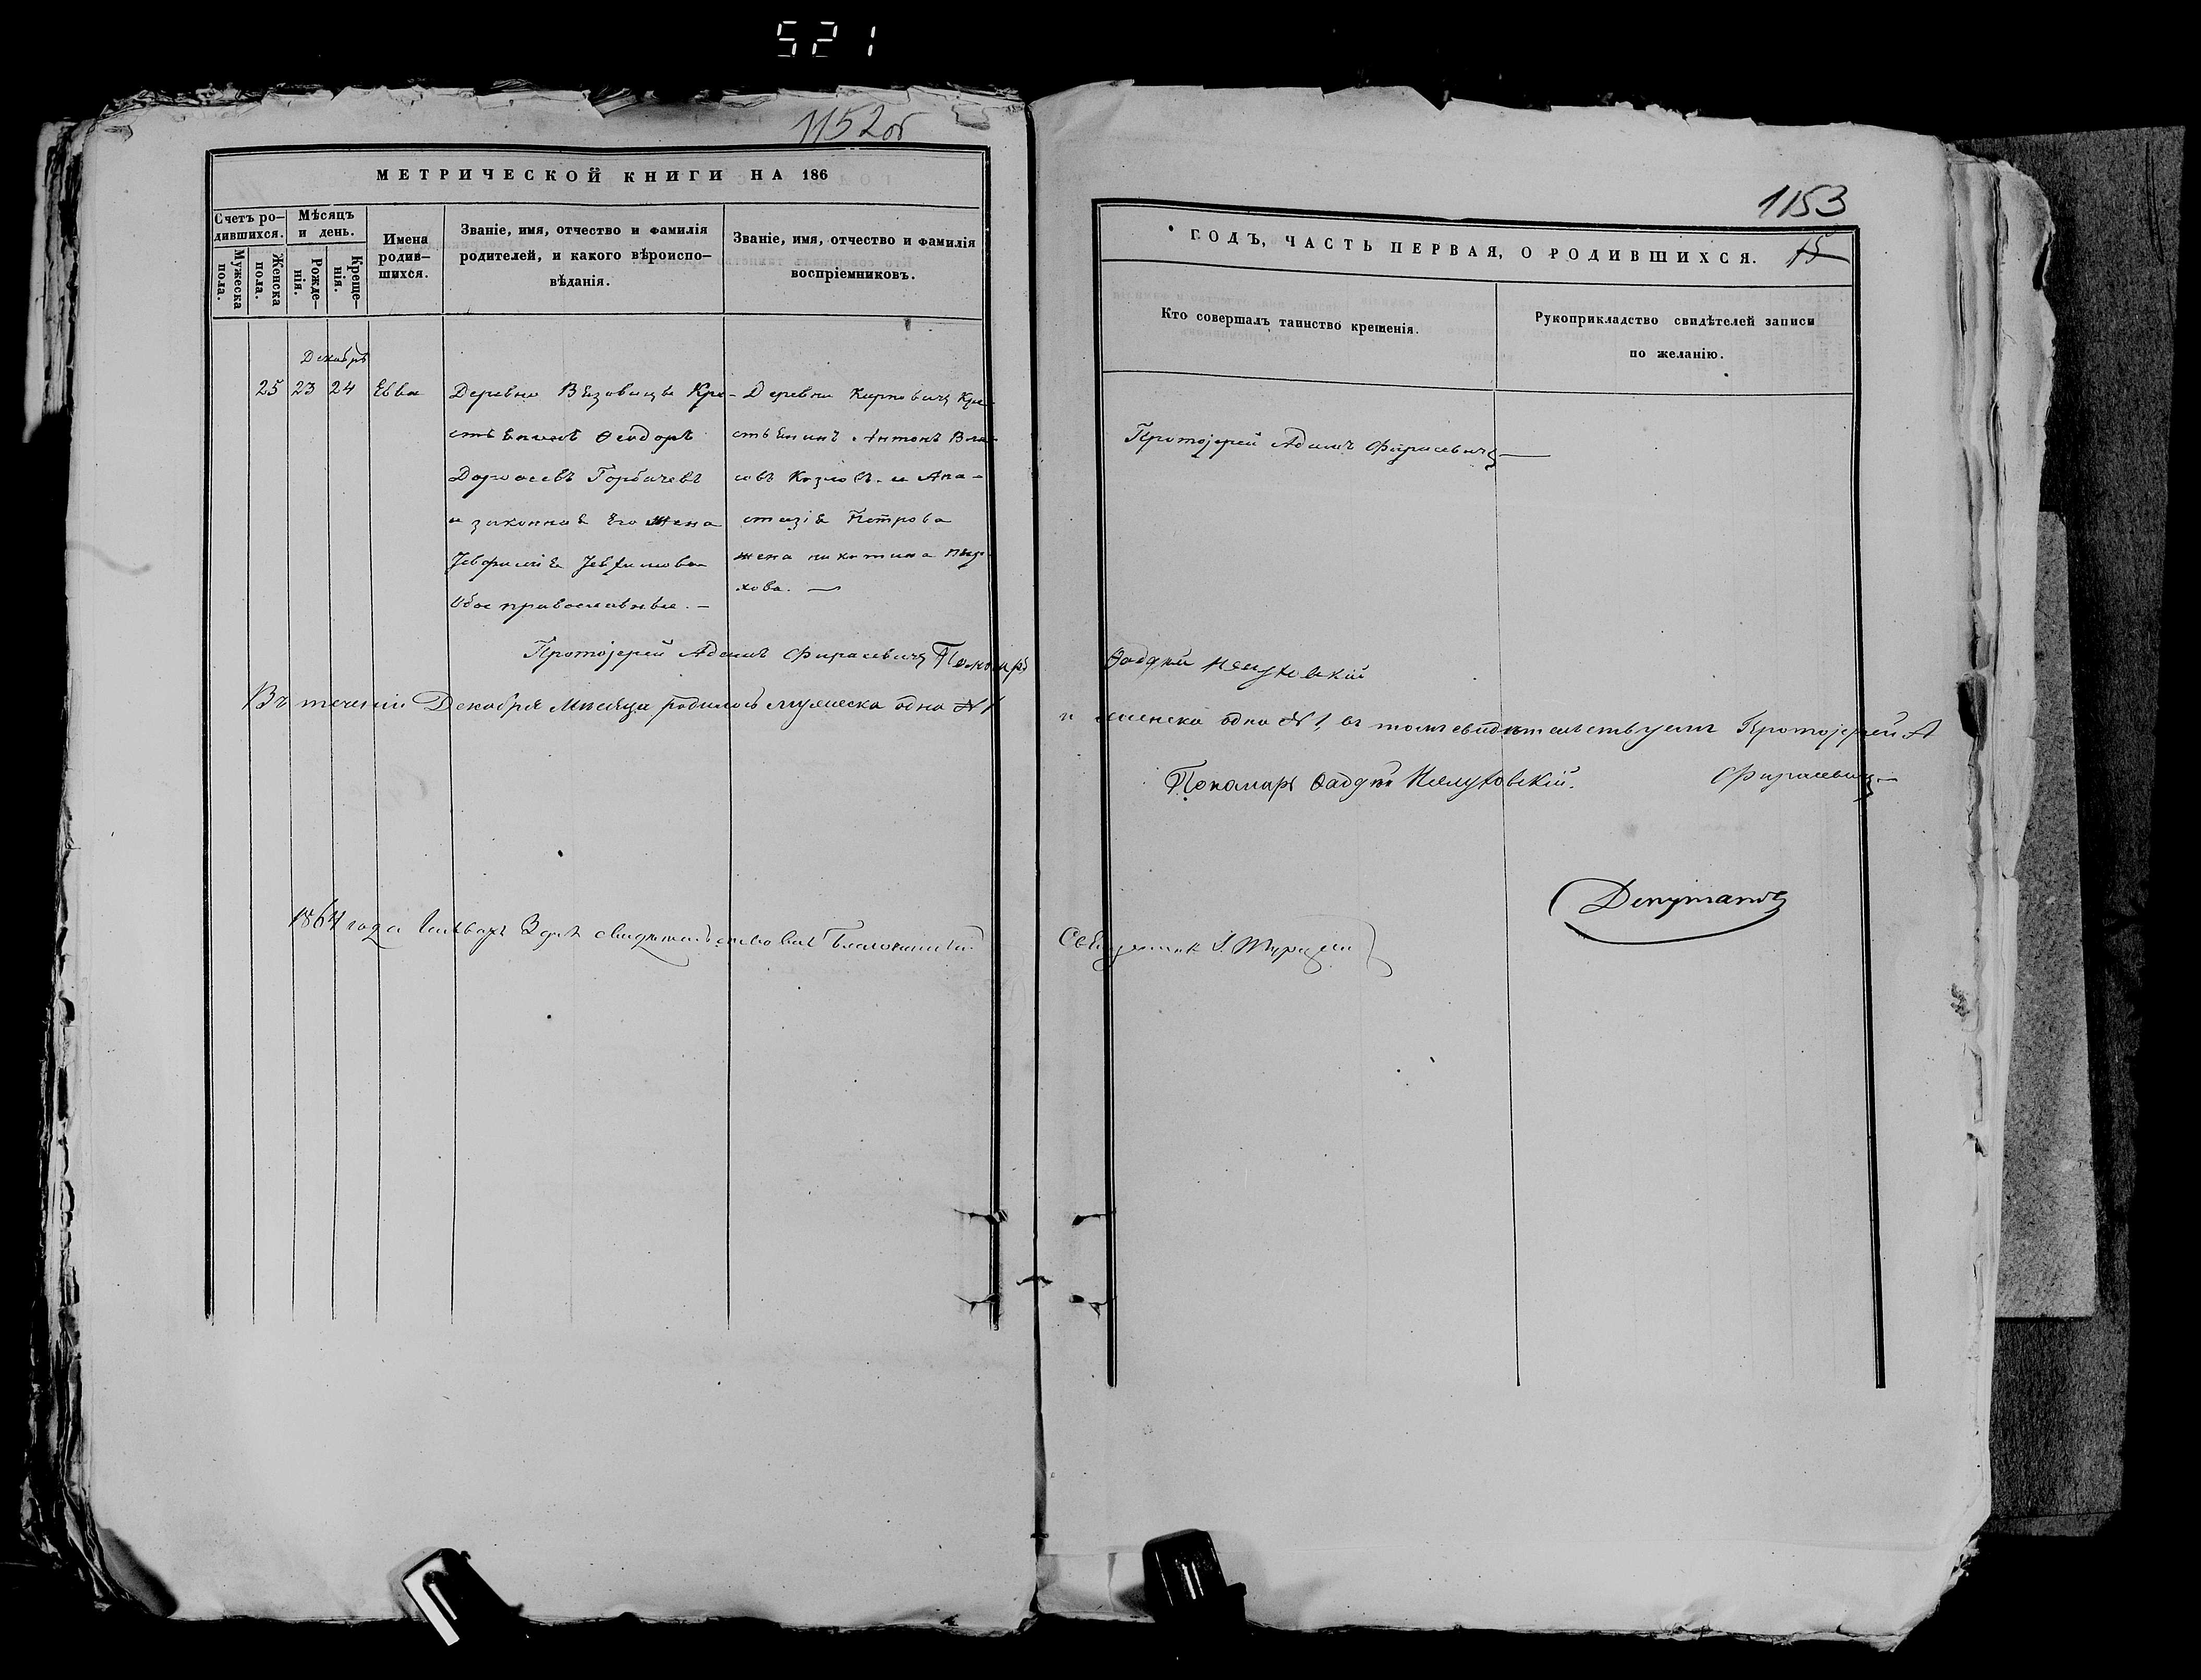 521
1152об
МЕТРИЧЕСКОЙ КНИГИ НА 186
Счетъ ро-
дившихся.
Мужеска
пола.
Женска
пола.
Мѣсяцъ
и день.
Рожде-
нія.
Креще-
нія.
Имена
родив-
шихся.
Званіе, имя, отчество и фамилія
родителей, и какого вѣроиспо-
вѣданія.
Званіе, имя, отчество и фамилія
воспріемниковъ.
Декабрь
25 23 24 Евва
Деревни Вязовицы Кре-
стьянинъ Ѳеодоръ
Горбачевъ
и законная Его жена
Обое православные. —
Деревни Кирповичъ Кре-
стьянинъ Антонъ Вла-
совъ Козловъ и Ана-
стазія Петрова
жена никитина
хова. —
Протоіерей Адамъ Фирасевичъ Пономарь
Въ теченіи Декабря Мѣсяца родилось мужеска одно N 1
1864 года Января 3 дня свидѣтельствовалъ
1153
15
ГОДЪ, ЧАСТЬ ПЕРВАЯ, О РОДИВШИХСЯ.
Кто совершалъ таинство крещенія.
Рукоприкладство свидѣтелей записи
по желанію.
Протоіерей Адамъ Фирасевичъ —
Ѳаддей
и женска одно N 1, въ томъ свидѣтельствуемъ Протоіерей А
Пономарь Ѳаддей
Фирасевичъ —
Депутатъ
Священникъ І.